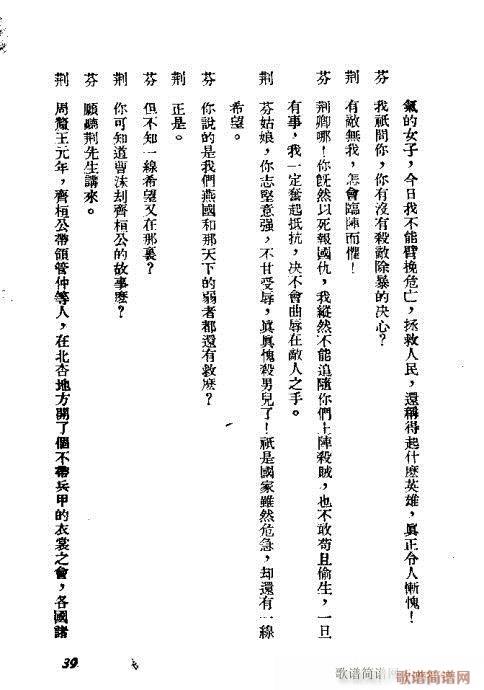 氣的女子，今日我不能臂挽危亡，拯救人民，還稱得起什麽英雄，眞正令人慚愧！
芬　我祇問你，你有沒有殺敵除暴的决心？
荆　有敵無我，怎會臨陣而懼！
芬　荆卿哪！你旣然以死報國仇，我縱然不能追隨你們上陣殺賊，也不敢苟且偷生，一旦
有事，我一定奮起抵抗，决不會曲辱在敵人之手。
荆　芬姑娘，你志堅意强，不甘受辱，眞眞愧殺男兒了！祇是國家雖然危急，却還有一線
希望。
芬　你說的是我們燕國和那天下的弱者都還有救麽？
荆　正是。
芬　但不知一線希望又在那裏？
荆　你可知道曹沫刦齊桓公的故事麽？
芬　願聽荆先生講來。
荆　周釐王元年，齊桓公帶領管仲等人，在北杏地方開了個不帶兵甲的衣裳之會，各國諸
39
歌谱简谱网
歌谱简谱网
www.jianpu.cn